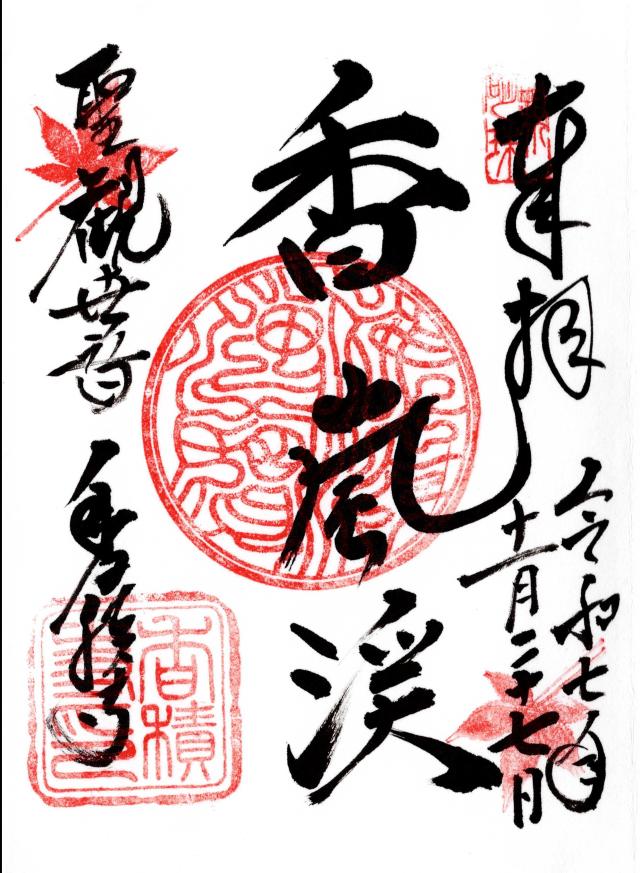 奉拝
令和七年
十一月二十七日
香嵐渓
聖観世音
香積寺
香積